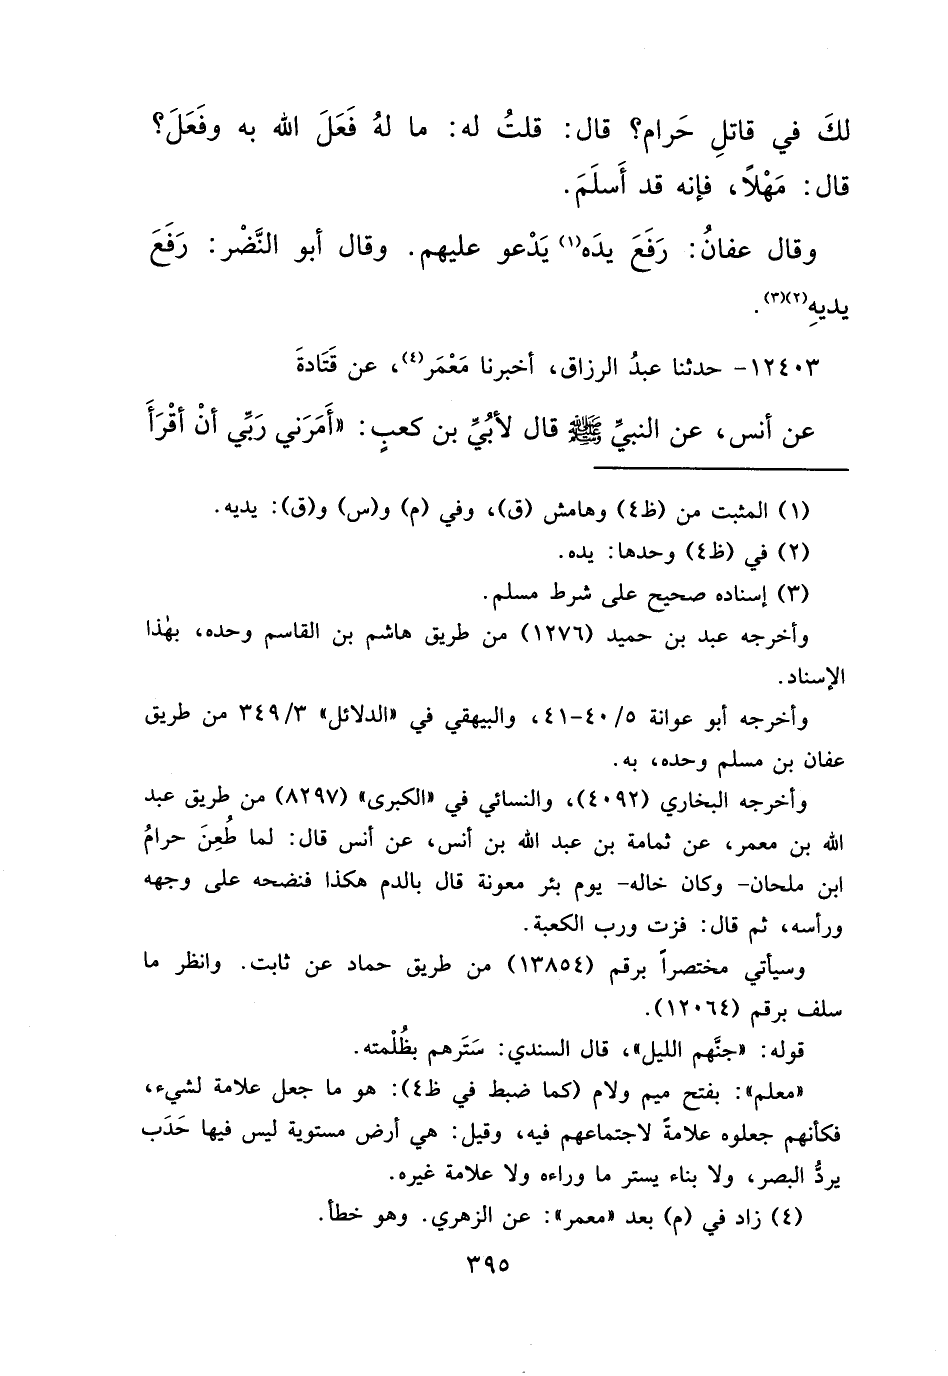 لكَ في قاتلِ حَرام؟ قال: قلتُ له: ما لهُ فَعَلَ الله به وفَعَلَ؟
قال: مَهْلاً، فإنه قد أَسلَمَ.
وقال عفانُ: رَفَعَ يدَه(١) يَدْعو عليهم. وقال أبو النَّضْر: رَفَعَ
يديهِ(٢)(٣).
١٢٤٠٣- حدثنا عبدُ الرزاق، أخبرنا مَعْمَر(٤)، عن قَتَادةَ
عن أنس، عن النبيِّ ﷺ قال لأبُيِّ بن كعبٍ: «أَمَرَني رَبِّي أنْ أقْرَأَ
(١) المثبت من (ظ٤) وهامش (ق)، وفي (م) و(س) و(ق): يديه.
(٢) في (ظ٤) وحدها: يده.
(٣) إسناده صحيح على شرط مسلم.
وأخرجه عبد بن حميد (١٢٧٦) من طريق هاشم بن القاسم وحده، بهٰذا
الإسناد.
وأخرجه أبو عوانة ٥/ ٤٠-٤١، والبيهقي في «الدلائل» ٣٤٩/٣ من طريق
عفان بن مسلم وحده، به.
وأخرجه البخاري (٤٠٩٢)، والنسائي في «الكبرى» (٨٢٩٧) من طريق عبد
الله بن معمر، عن ثمامة بن عبد الله بن أنس، عن أنس قال: لما طُعِنَ حرامُ
ابن ملحان- وكان خاله- يوم بئر معونة قال بالدم هكذا فنضحه على وجهه
ورأسه، ثم قال: فزت ورب الكعبة.
وسيأتي مختصراً برقم (١٣٨٥٤) من طريق حماد عن ثابت. وانظر ما
سلف برقم (١٢٠٦٤).
قوله: «جنَّهم الليل»، قال السندي: سَتَرهم بظُلْمته.
«معلم»: بفتح ميم ولام (كما ضبط في ظ٤): هو ما جعل علامة لشيء،
فكأنهم جعلوه علامةً لاجتماعهم فيه، وقيل: هي أرض مستوية ليس فيها حَدَب
يردُّ البصر، ولا بناء يستر ما وراءه ولا علامة غيره.
(٤) زاد في (م) بعد «معمر»: عن الزهري. وهو خطأ.
٣٩٥